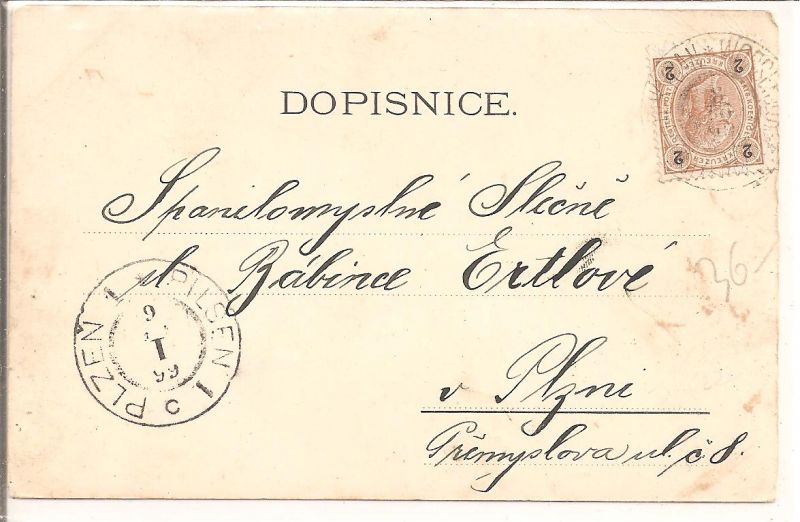 DOPISNICE.
2 2
KREUZER
2 2
Spanilomyslné Slečně
sl. Bábince Ertlové
v Plzni
Přemyslova ul. č 8.
PLZEŇ 1 * PILSEN 1
9
I
99
36-